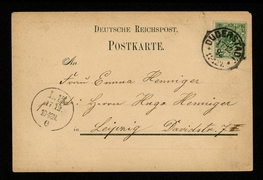 DEUTSCHE REICHSPOST.
POSTKARTE.
DUDERSTADT
An
Frau Emma Henniger
bei Herrn Hugo Henniger
in Leipzig Davidstr. 7